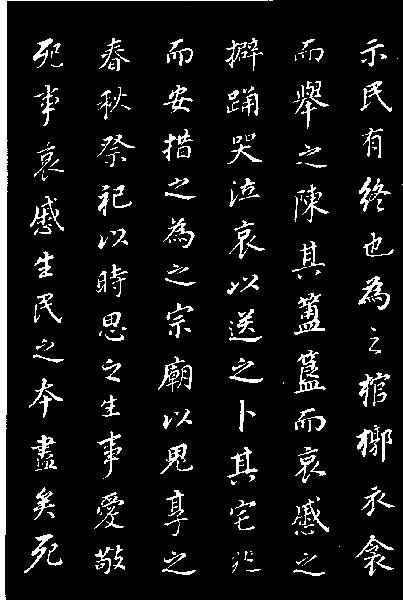 示民有終也為之棺槨衣衾
而舉之陳其簠簋而哀慼之
擗踊哭泣哀以送之卜其宅兆
而安措之為之宗廟以鬼享之
春秋祭祀以時思之生事愛敬
死事哀慼生民之本盡矣死